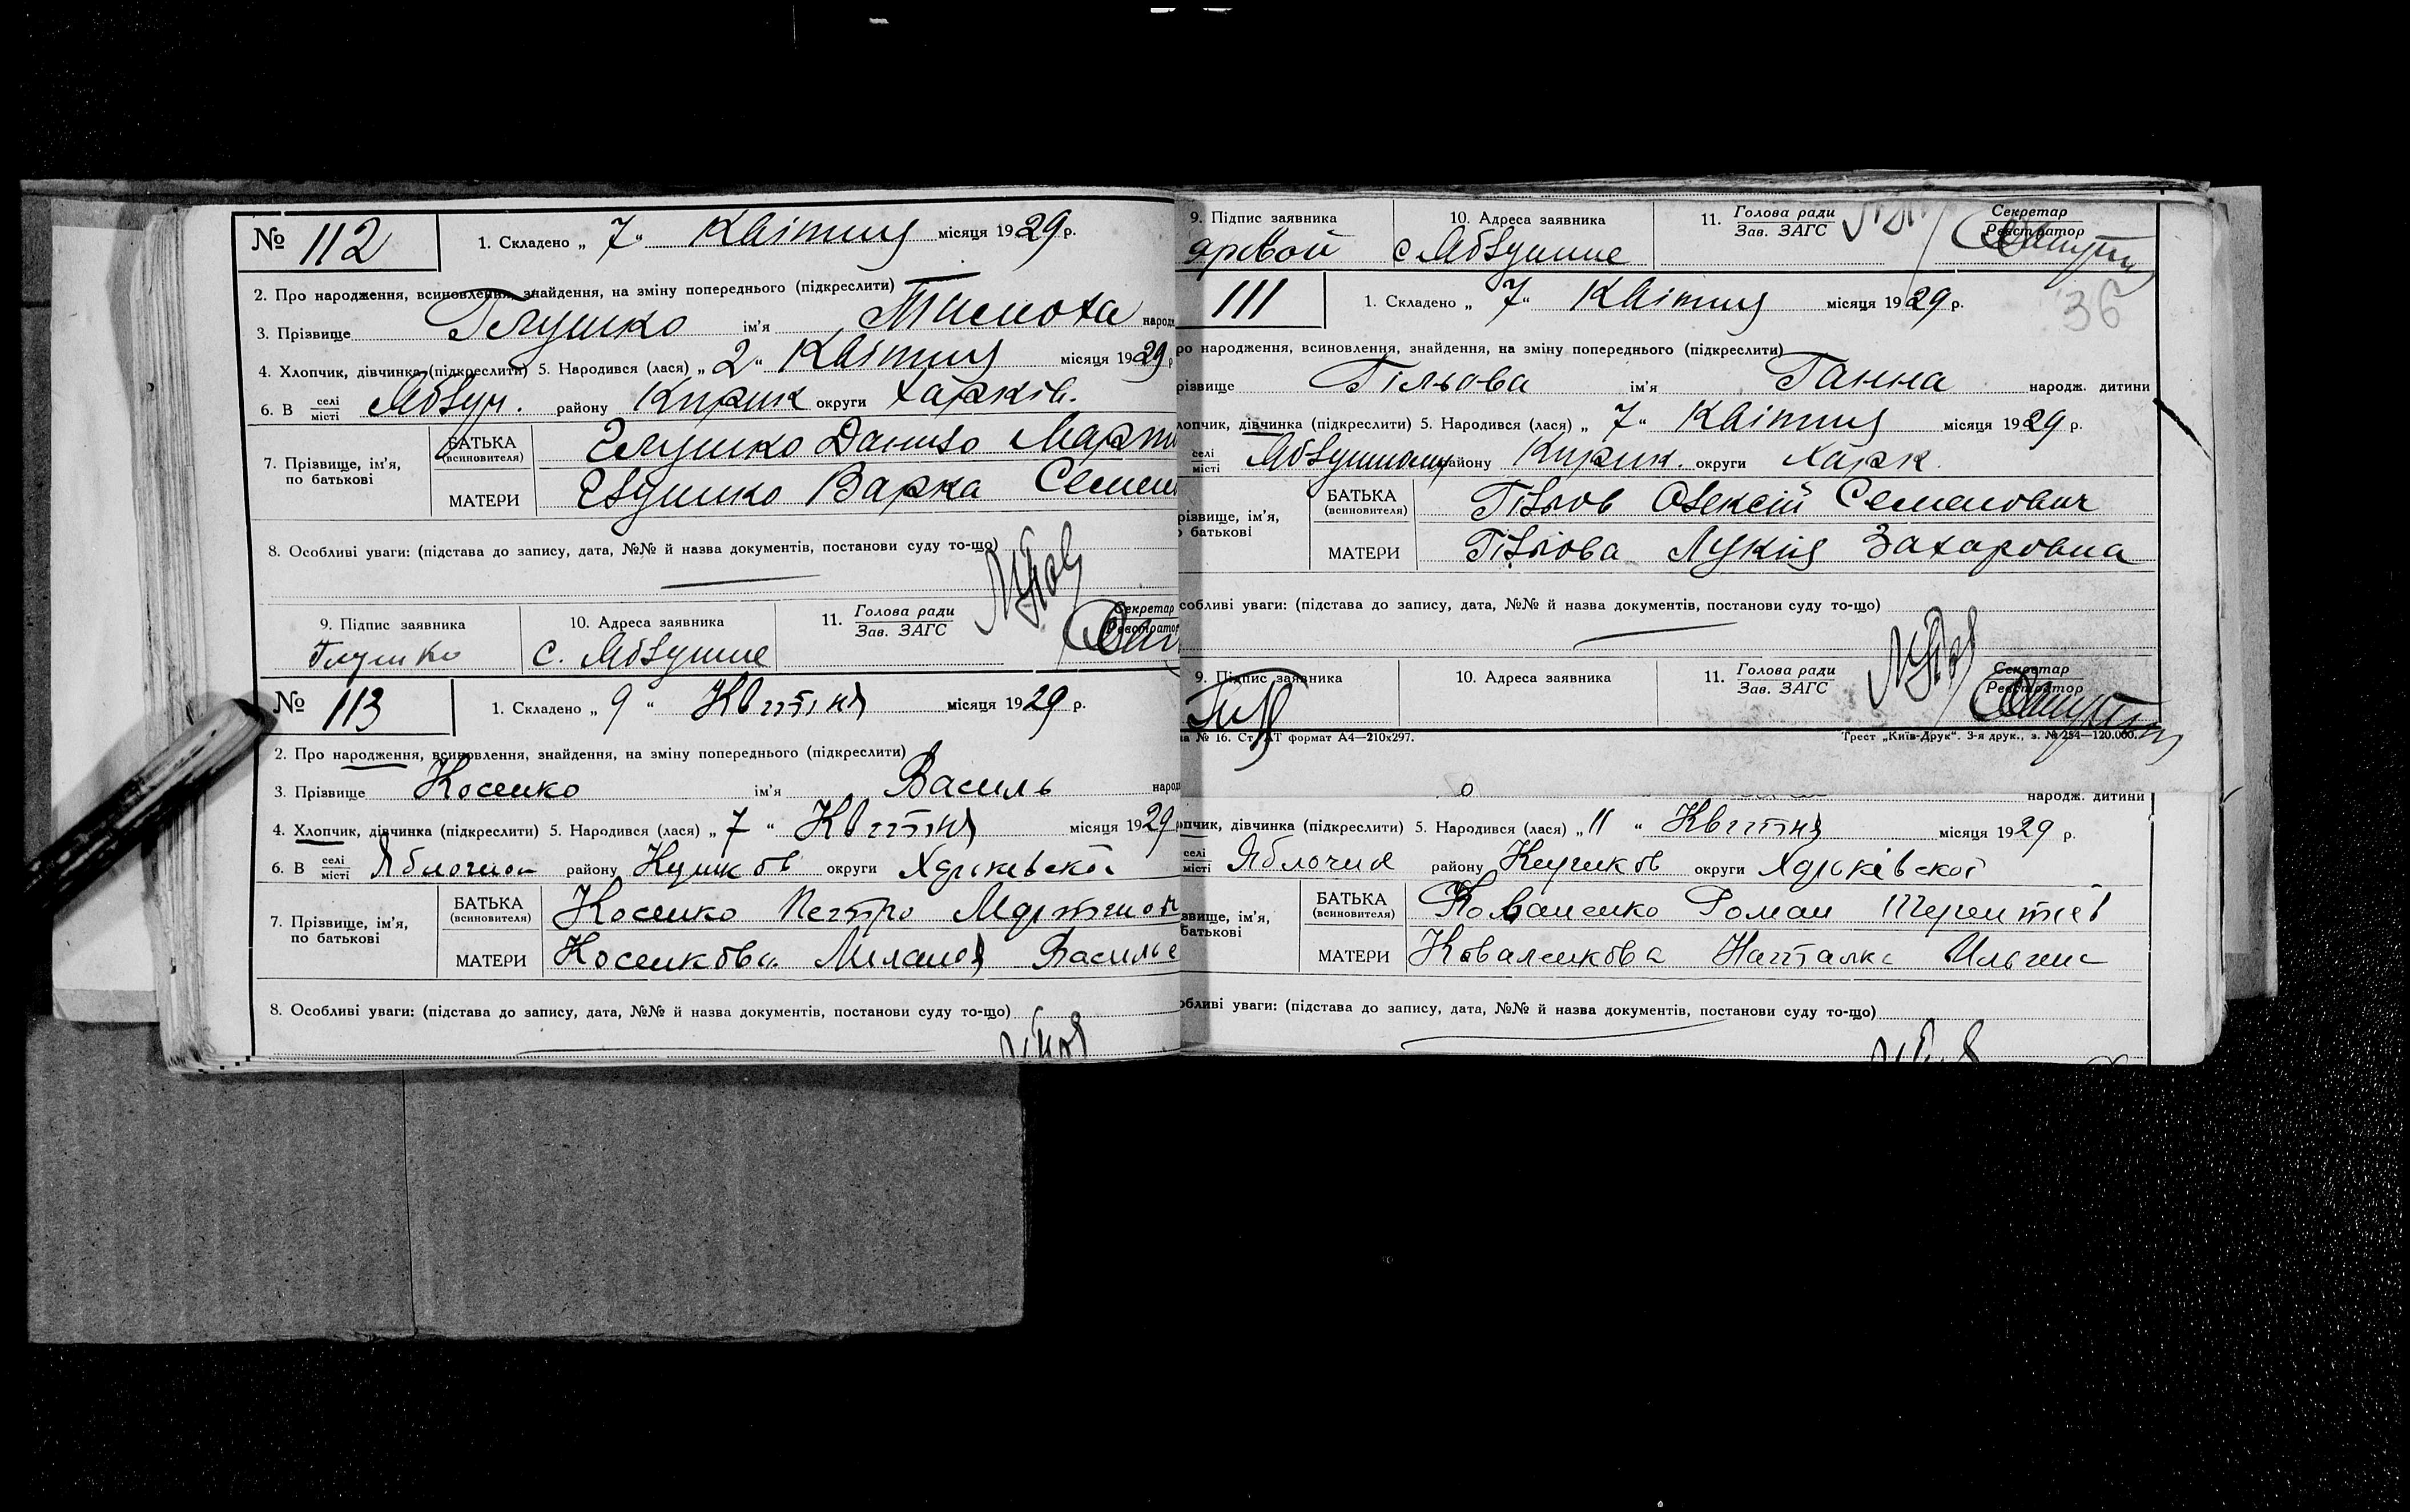 № 112
1. Складено „ 7 “ Квітня місяця 1929 р.
2. Про народження, всиновлення, знайдення, на зміну попереднього (підкреслити)
3. Прізвище Глушко ім’я Тимоха народ
4. Хлопчик, дівчинка (підкреслити) 5. Народився (лася) „ 2 “ Квітня місяця 1929 р
6. В селі місті Яблуч. району округи Харків.
7. Прізвище, ім’я, по батькові
БАТЬКА (всиновителя) Глушко Данило Март
МАТЕРИ Глушко Варка Семен
8. Особливі уваги: (підстава до запису, дата, №№ й назва документів, постанови суду то-що)
9. Підпис заявника 10. Адреса заявника 11. Голова ради Зав. ЗАГС Секретар Реєстратор
Глушко с. Яблушне
№ 113
1. Складено „ 9 “ Квітня місяця 1929 р.
2. Про народження, всиновлення, знайдення, на зміну попереднього (підкреслити)
3. Прізвище Косенко ім’я Василь народ
4. Хлопчик, дівчинка (підкреслити) 5. Народився (лася) „ 7 “ Квітня місяця 1929
6. В селі місті району округи Харківської
7. Прізвище, ім’я, по батькові
БАТЬКА (всиновителя) Косенко Петро
МАТЕРИ Косенкова Мелания Василье
8. Особливі уваги: (підстава до запису, дата, №№ й назва документів, постанови суду то-що)
9. Підпис заявника 10. Адреса заявника 11. Голова ради Зав. ЗАГС Секретар Реєстратор
яровой с Яблушне
111
1. Складено „ 7 “ Квітня місяця 1929 р.
36
ро народження, всиновлення, знайдення, на зміну попереднього (підкреслити)
різвище Гільова ім’я Ганна народж. дитини
лопчик, дівчинка (підкреслити) 5. Народився (лася) „ 7 “ Квітня місяця 1929 р.
селі місті Яблушному району округи Харк.
різвище, ім’я, о батькові
БАТЬКА (всиновителя) Гільов Олексій Семенович
МАТЕРИ Гільова Лукія Захаровна
собливі уваги: (підстава до запису, дата, №№ й назва документів, постанови суду то-що)
9. Підпис заявника 10. Адреса заявника 11. Голова ради Зав. ЗАГС Секретар Реєстратор
а № 16. Ст. АТ формат А4—210х297. Трест „Київ-Друк“. 3-я друк., з. № 254—120.000.
народж. дитини
опчик, дівчинка (підкреслити) 5. Народився (лася) „ 11 “ Квітня місяця 1929 р.
селі місті району округи Харьківської
звище, ім’я, батькові
БАТЬКА (всиновителя) Коваленко Роман
МАТЕРИ Коваленкова Наталка
обливі уваги: (підстава до запису, дата, №№ й назва документів, постанови суду то-що)